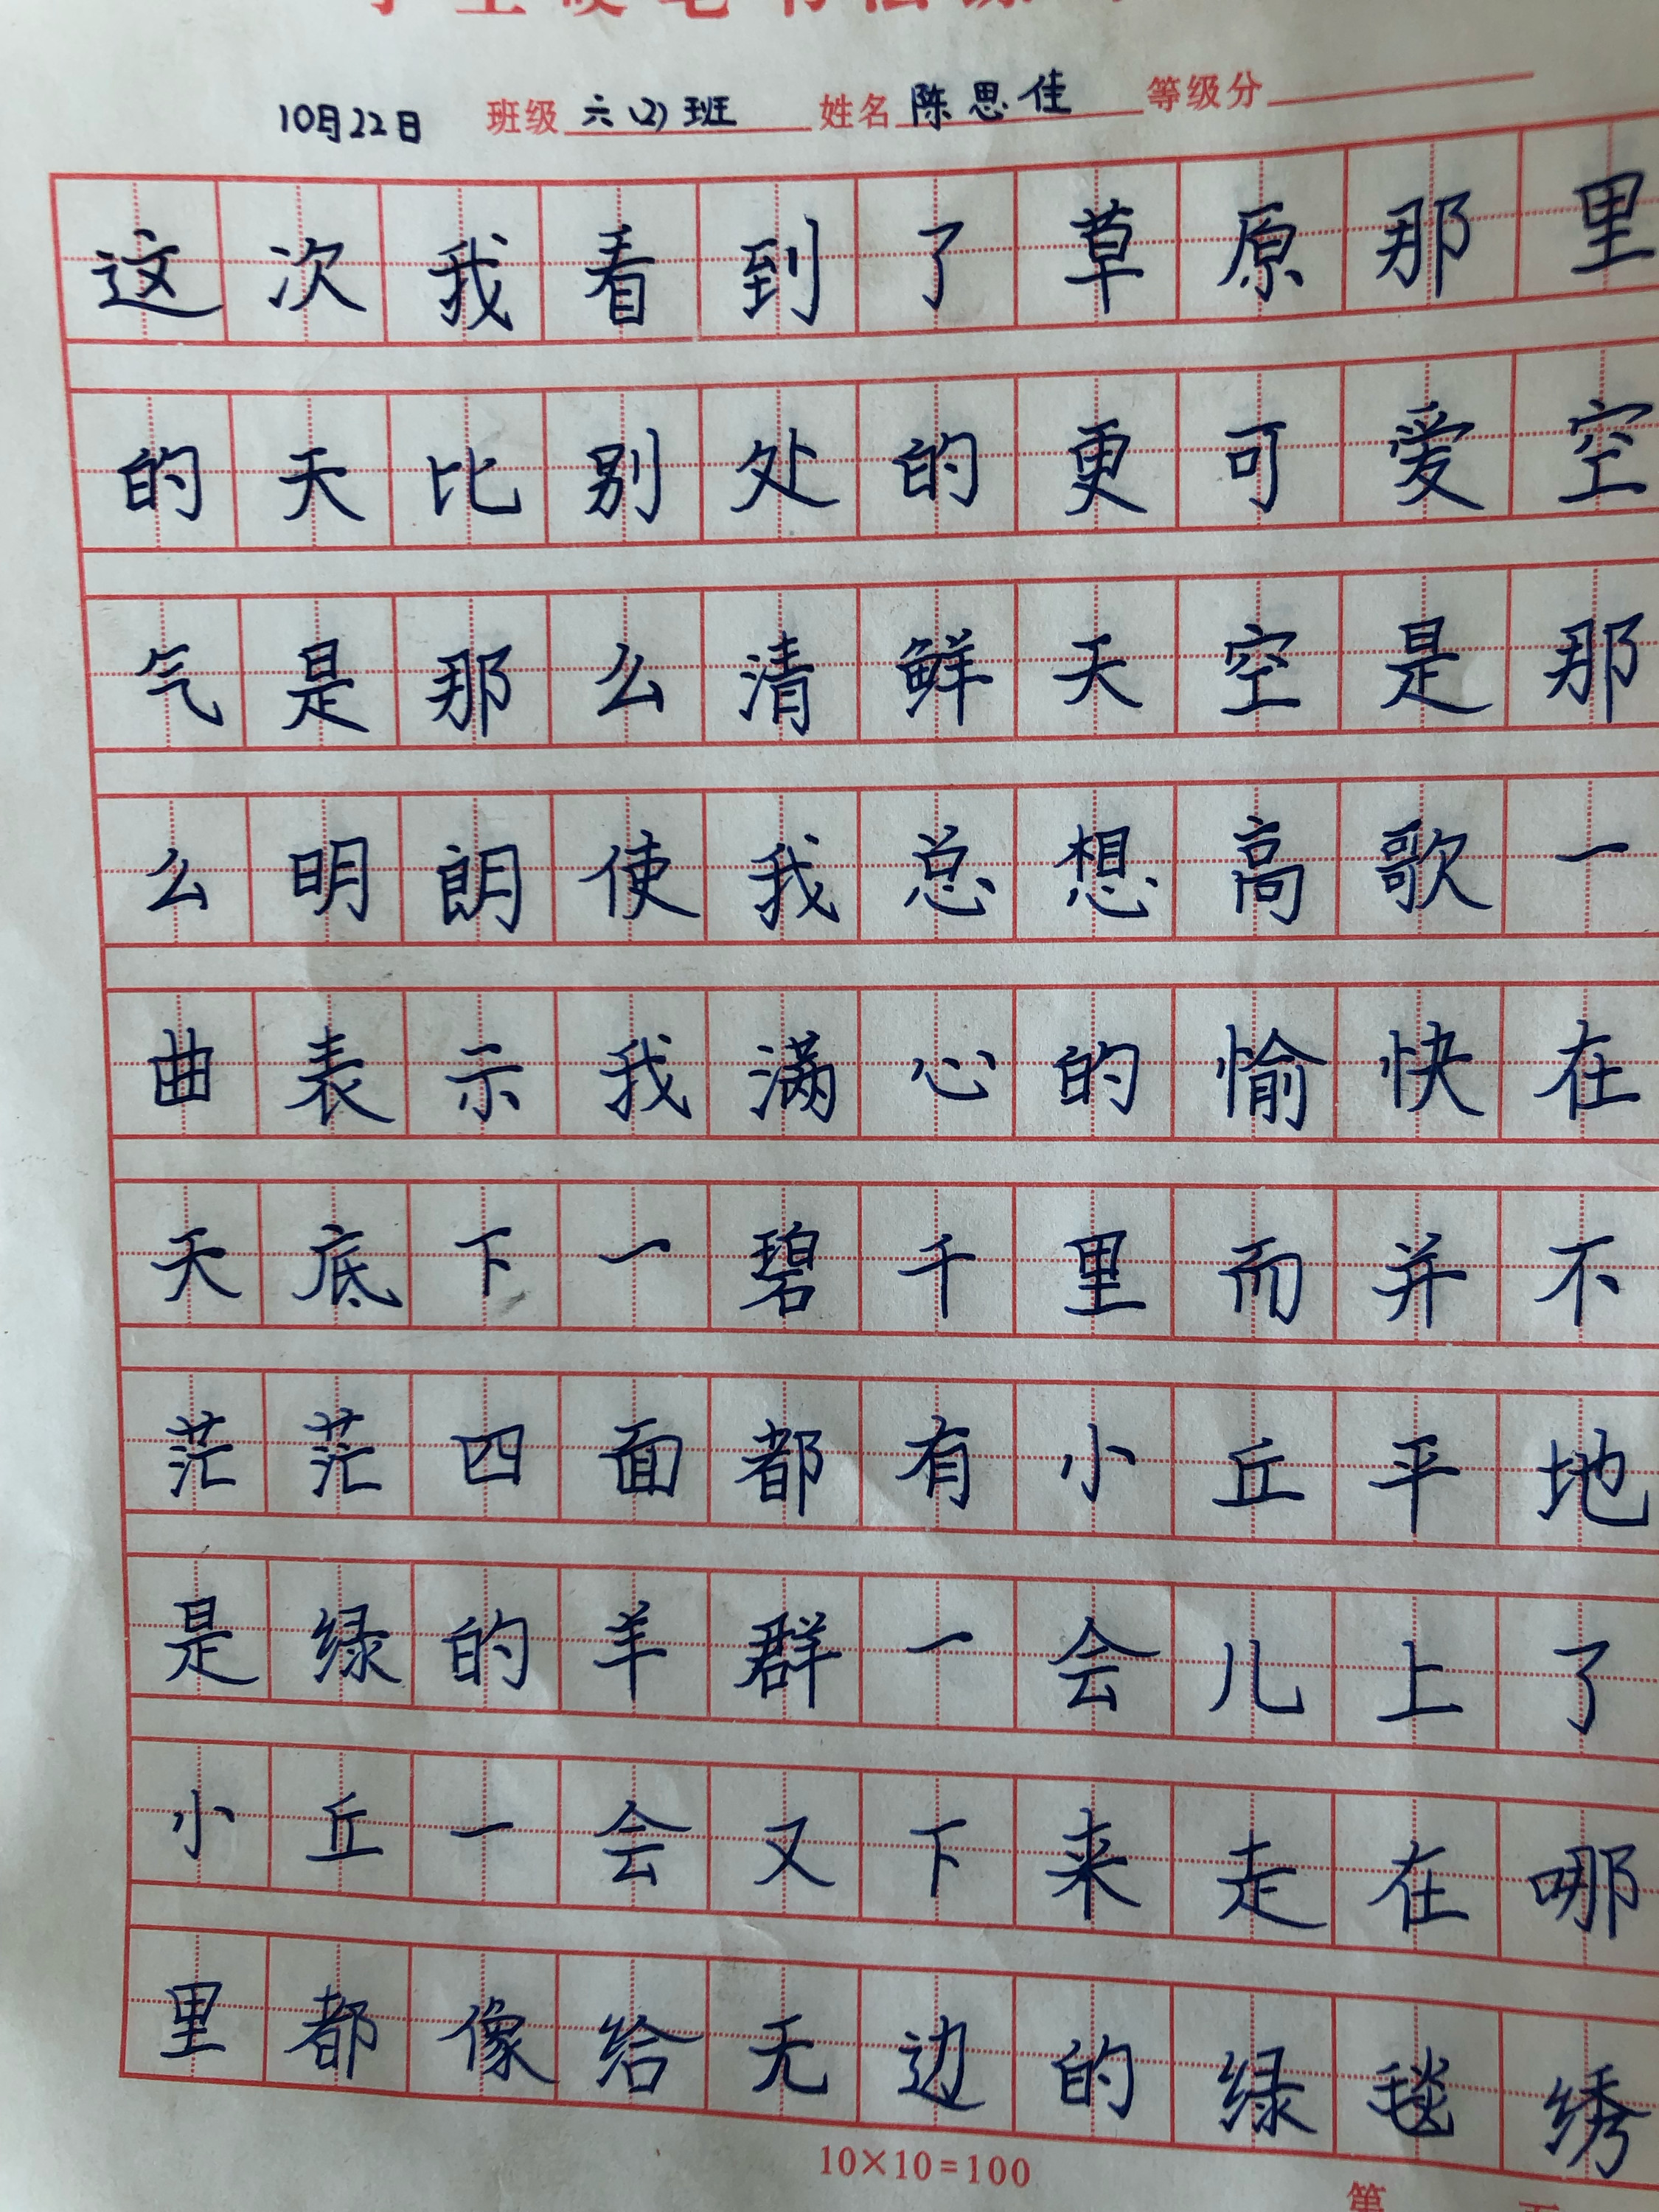 10月22日 班级 六(2)班 姓名 陈思佳 等级分
这次我看到了草原那里
的天比别处的更可爱空
气是那么清鲜天空是那
么明朗使我总想高歌一
曲表示我满心的愉快在
天底下一碧千里而并不
茫茫四面都有小丘平地
是绿的羊群一会儿上了
小丘一会又下来走在哪
里都像给无边的绿毯绣
10×10=100
第